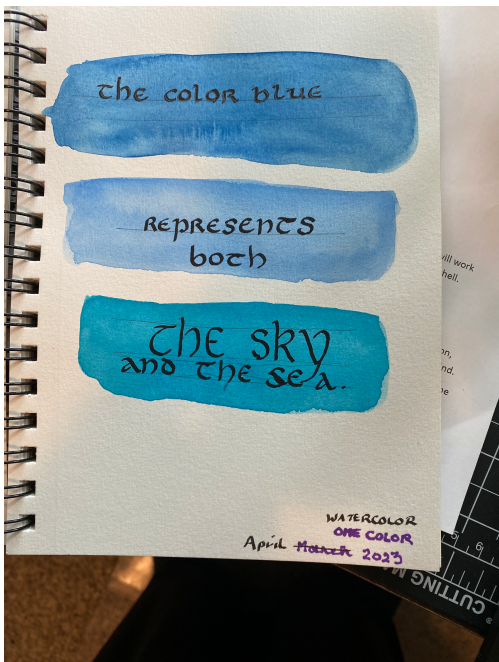 the color blue
represents
both
the sky
and the sea.
WATERCOLOR
ONE COLOR
April March 2023
ill work
hell.
nd.
CUTTING MA